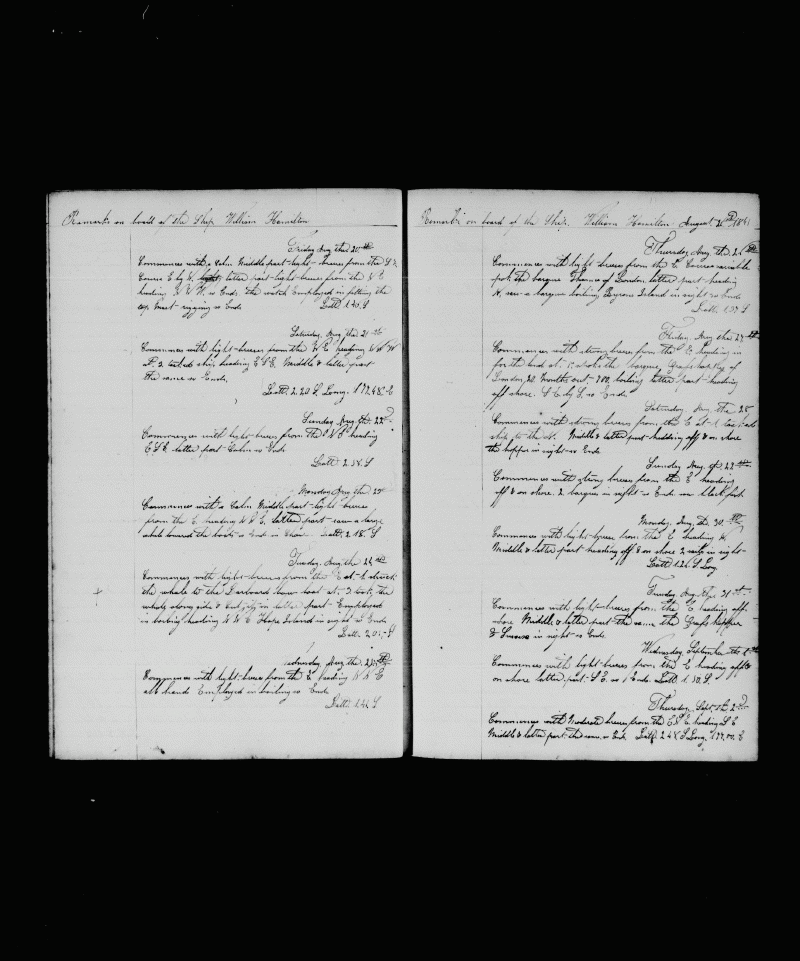 Remarks on board of the Ship William Hamilton
Friday Aug the 20th
Commences with a Calm Middle part light breeses from the S E
Course E by N latter part light breeses from the N E
heading N N W so Ends the watch Employed in fitting the
Mast rigging so Ends Latt 1.20 S
Saturday Aug the 21st
Commences with light breeses from the N E heading N W W
P. 2 tacked ship heading E S E Middle & latter part
the same so Ends
Latt 2.20 S Long. 177,48, E
Sunday Aug the 22d
Commences with light breeses from the N E heading
E S E latter part Calm so Ends
Latt 2.38 S
Monday Aug the 23
Commences with a Calm Middle part light breeses
from the E heading N N E latter part saw a large
whale lowered the boats so Ends in Chase Latt, 2.18, S
Tuesday Aug the 24th
Commences with light breeses from the E at struck
the whale to the Larboard bow boat at 2 took the
whale along side & latter part Employed
in boiling heading N N E Hope Island in sight so Ends
Latt 2.01, S
Wednesday Aug the 25th
Commences with light breeses from the E heading N N E
all hands Employed in boiling so Ends
Latt 1.41 S
Remarks on board of the Ship William Hamilton August 26th 1841
Thursday Aug the 26th
Commences with light breeses from the E Course variable
spok the barque Thames of London latter part heading
N, saw a barque boiling Byrons Island in sight so Ends
Latt. 1.37 S
Friday Aug the 27th
Commences with strong breeses from the S E heading in
for the land at spoke the barque Grasshopper of
London, 20 Months out 700, boiling latter part heading
off shore S E by S so Ends
Saturday Aug the 28
Commences with strong breeses from the E at
ship to the N. Middle & latter part heading off & on shore
the hopper in sight so Ends
Sunday Aug the 29th
Commences with strong breeses from the E heading
off & on shore 2 barques in sight so Ends saw black fish
Monday Aug the 30th
Commences with light breeses from the E heading N
Middle & latter part heading off & on shore 2 sails in sight
Latt 1.24 S Long
Tuesday Aug the 31st
Commences with light breeses from the E heading off
shore Middle & latter part the same the Grass hopper
& in sight so Ends
Wednesday September the 1st
Commences with light breeses from the E heading off &
on shore latter part S E so Ends Latt 1.30 S.
Thursday Sept the 2d
Commences with Moderate breeses from the E N E heading S E
Middle & latter part the same so Ends Latt 2.48 S Long, 177,00, E